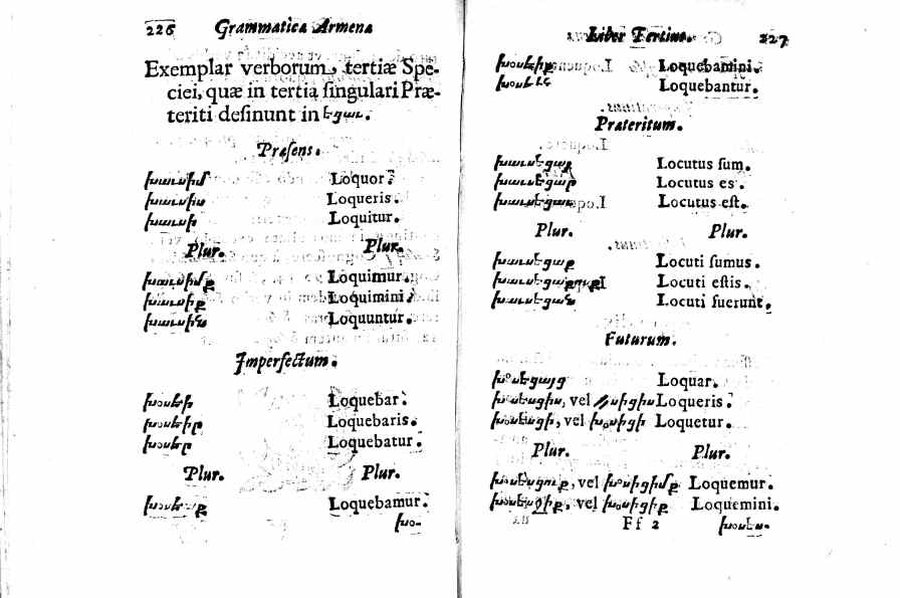 226 Grammatica Armena
Exemplar verborum tertiæ Spe-
ciei, quæ in tertia singulari Præ-
teriti desinunt in եցաւ.
Præsens.
խաւսիմ Loquor.
խաւսիս Loqueris.
խաւսի Loquitur.
Plur. Plur.
խաւսիմք Loquimur.
խաւսիք Loquimini.
խաւսին Loquuntur.
Imperfectum.
Loquebar.
Loquebaris.
Loquebatur.
Plur. Plur.
Loquebamur.
խօ-
Liber Tertius. 227
Loquebamini.
Loquebantur.
Præteritum.
խաւսեցայ Locutus sum.
խաւսեցար Locutus es.
խաւսեցաւ Locutus est.
Plur. Plur.
խաւսեցաք Locuti sumus.
Locuti estis.
խաւսեցան Locuti fuerunt.
Futurum.
խօսեցայց Loquar.
խօսեսցիս, vel Loqueris.
խօսեսցի, vel խօսիցի Loquetur.
Plur. Plur.
vel խօսիցիմք Loquemur.
խօսեսջիք, vel խօսիցիք Loquemini.
Ff 2